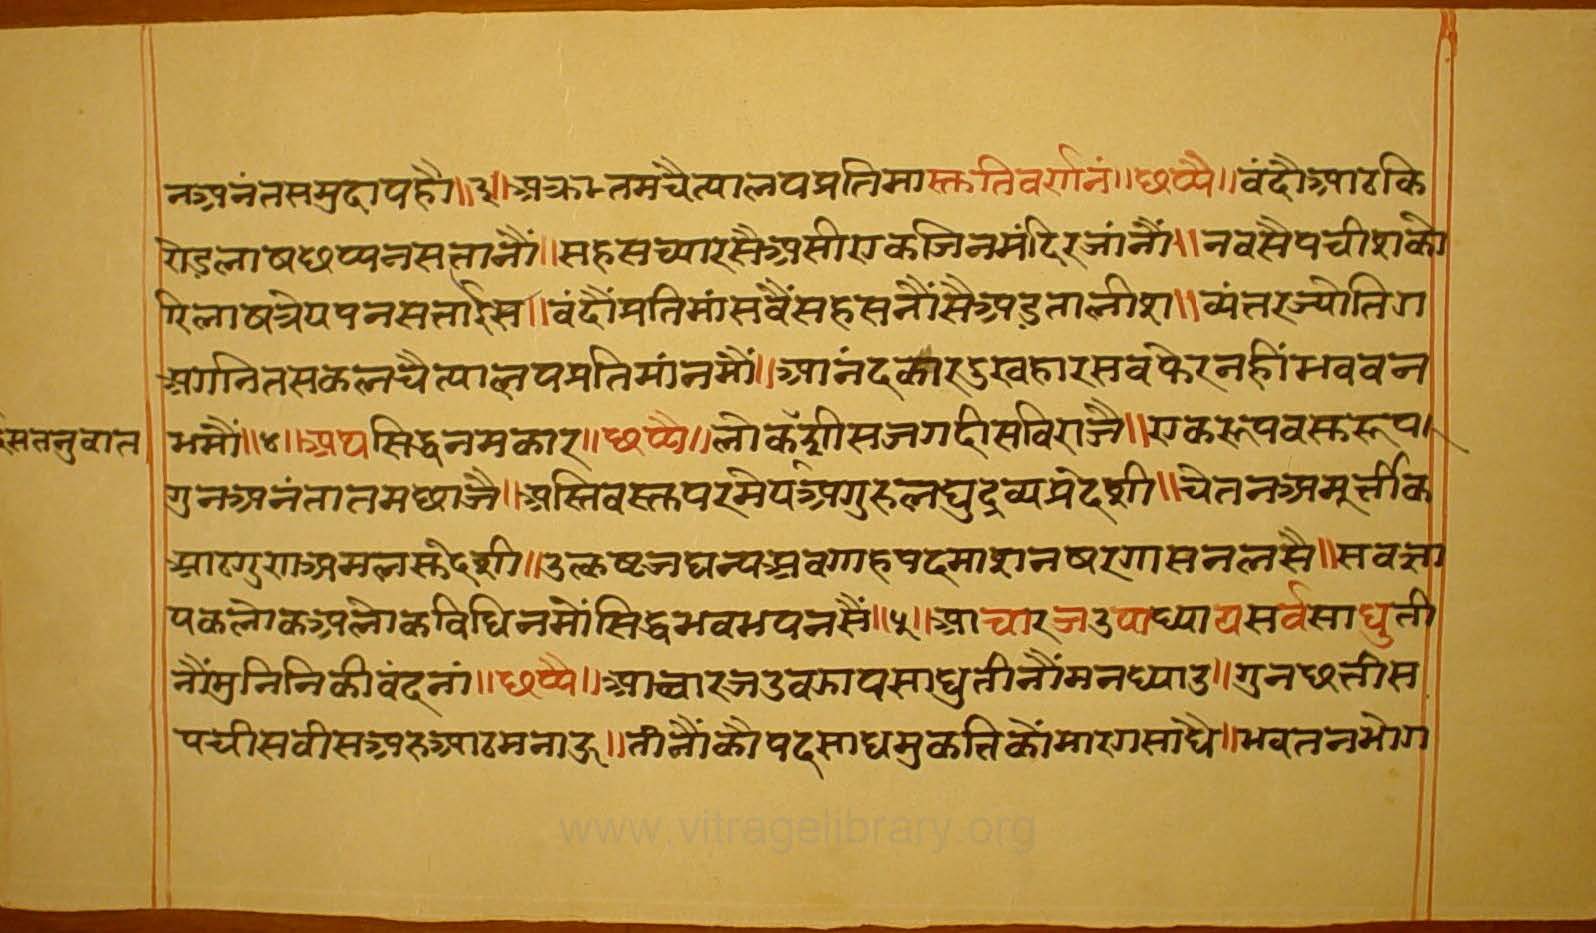 न अनंत समुदाय है॥३॥ अक्रातम चैत्यालय प्रतिमा स्तुति वर्णनं॥ छप्पै॥ वंदौ आठ कि
रोड लाष छप्पन सत्तानौं॥ सहस च्यारसै असी एक जिनमंदिर जांनौं॥ नवसै पचीश को
रि लाष त्रेपन सत्ताईस॥ वंदौं प्रतिमां सवैं सहस नौंसै अडतालीश॥ व्यंतर ज्योतिग
अगनित सकल चैत्यालय प्रतिमां नमौं॥ आनंदकार दुखहार सव फेर नहीं भववन
भमौं॥४॥ अथ सिद्ध नमकार॥ छप्पै॥ लोकंशीस जगदीस विराजै॥ एकरूप वस्तरूप।
ईस तनुवात
गुन अनंतातम छाजै॥ अस्ति वस्त परमेय अगुरुलघु द्रव्य प्रदेशी॥ चेतन अमूर्त्तीक
आठ गुण अमल सुदेशी॥ उत्कृष्ट जघन्य अवगाह पदमाशन षरगासन लसै॥ सव ज्ञा
यक लोक अलोक विधि नमों सिद्ध भवभय नसैं॥५॥ आचारज उपाध्याय सर्व साधु ती
नौं मुनिनि की वंदनां॥ छप्पै॥ आचारज उवझाय साधु तीनौं मन ध्याउ॥ गुन छत्तीस
पचीस वीस अरु आठ मनाऊ॥ तीनौं कौ पद साध मुकत्ति कौं मारग साधै॥ भव तन भोग
www.vitragelibrary.org